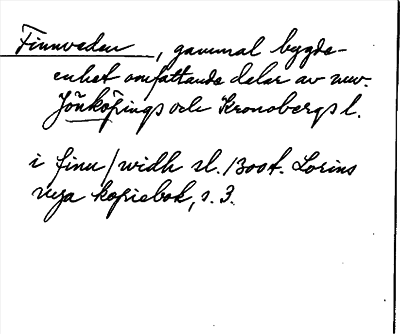 Finnveden, gammal bygde-
enhet omfattande delar av nuv.
Jönköpings och Kronobergs l.
i finn/widh sl. 1300 t. Lorins
nya kopiebok, s. 3.